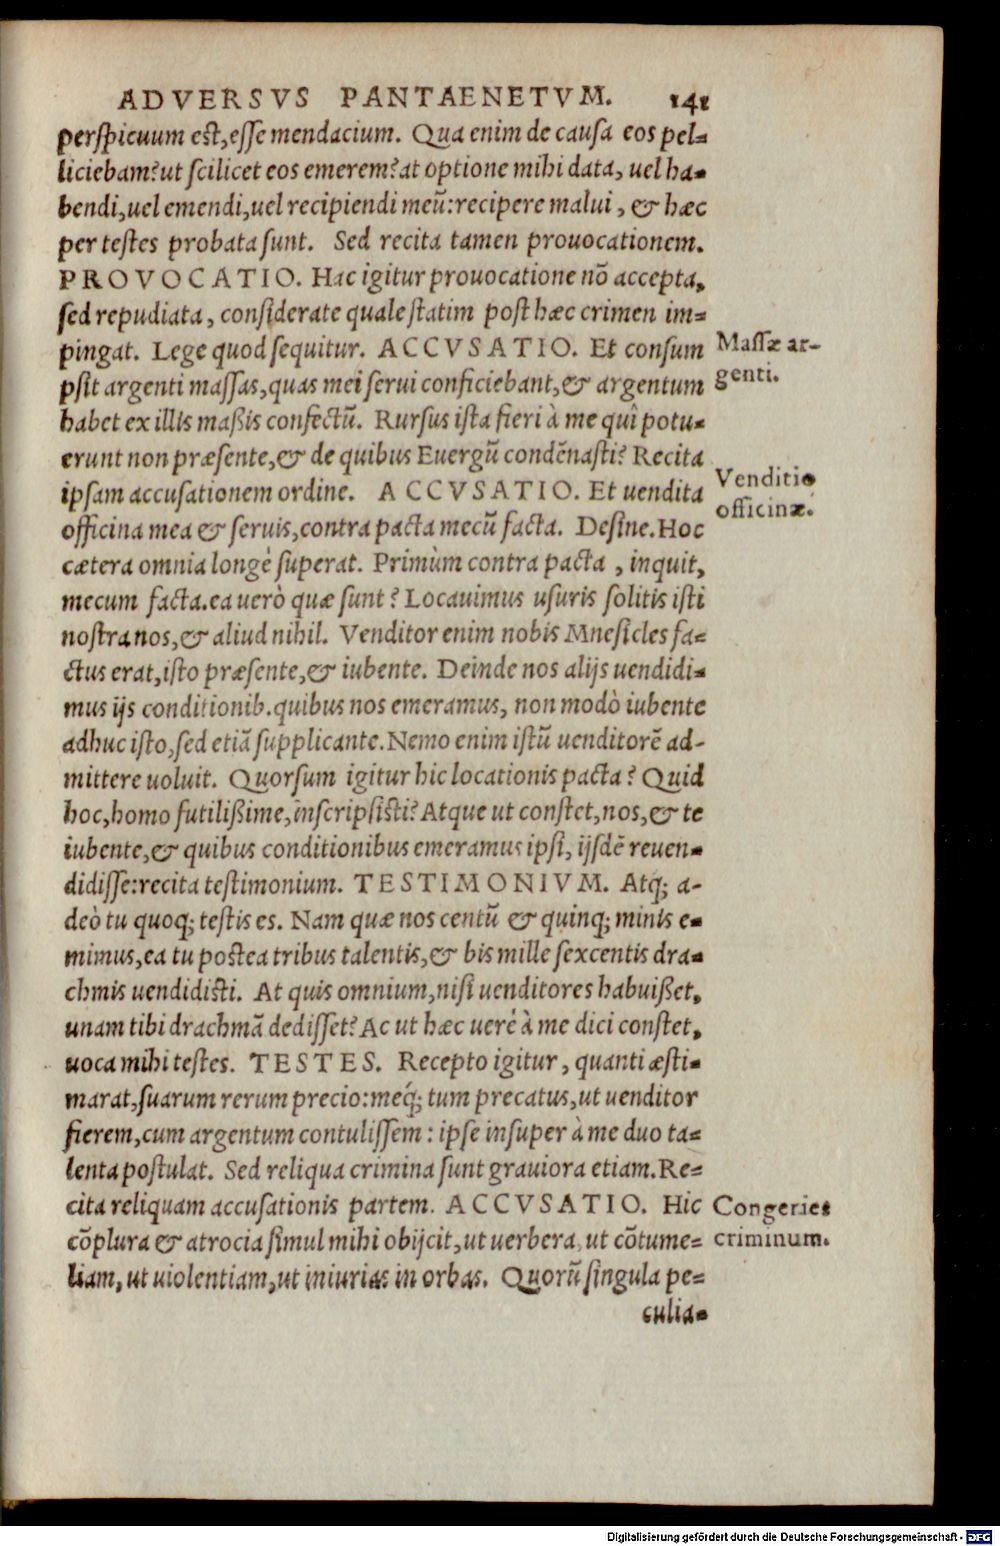 ADVERSVS PANTAENETVM. 141
perspicuum est, esse mendacium. Qua enim de causa eos pel=
liciebam? ut scilicet eos emerem? at optione mihi data, uel ha=
bendi, uel emendi, uel recipiendi meū: recipere malui, & hæc
per testes probata sunt. Sed recita tamen prouocationem.
PROVOCATIO. Hac igitur prouocatione nō accepta,
sed repudiata, considerate quale statim post hæc crimen im=
pingat. Lege quod sequitur. ACCVSATIO. Et consum
Massæ ar-
psit argenti massas, quas mei serui conficiebant, & argentum
genti.
habet ex illis maßis confectū. Rursus ista fieri à me quî potu=
erunt non præsente, & de quibus Euergū condēnasti? Recita
ipsam accusationem ordine. ACCVSATIO. Et uendita
Venditio
officina mea & seruis, contra pacta mecū facta. Desine. Hoc
officinæ.
cætera omnia longè superat. Primùm contra pacta, inquit,
mecum facta. ea uerò quæ sunt? Locauimus usuris solitis isti
nostra nos, & aliud nihil. Venditor enim nobis Mnesicles fa=
ctus erat, isto præsente, & iubente. Deinde nos alijs uendidi=
mus ijs conditionib. quibus nos emeramus, non modò iubente
adhuc isto, sed etiā supplicante. Nemo enim istū uenditorē ad-
mittere uoluit. Quorsum igitur hic locationis pacta? Quid
hoc, homo futilißime, inscripsisti? Atque ut constet, nos, & te
iubente, & quibus conditionibus emeramus ipsi, ijsdē reuen=
didisse: recita testimonium. TESTIMONIVM. Atq; a-
deò tu quoq; testis es. Nam quæ nos centū & quinq; minis e=
mimus, ea tu postea tribus talentis, & bis mille sexcentis dra=
chmis uendidisti. At quis omnium, nisi uenditores habuißet,
unam tibi drachmā dedisset? Ac ut hæc uerè à me dici constet,
uoca mihi testes. TESTES. Recepto igitur, quanti æsti=
marat, suarum rerum precio: meq́; tum precatus, ut uenditor
fierem, cum argentum contulissem: ipse insuper à me duo ta=
lenta postulat. Sed reliqua crimina sunt grauiora etiam. Re=
cita reliquam accusationis partem. ACCVSATIO. Hic
Congeries
cōplura & atrocia simul mihi obijcit, ut uerbera, ut cōtume=
criminum.
liam, ut uiolentiam, ut iniurias in orbas. Quorū singula pe=
culia=
Digitalisierung gefördert durch die Deutsche Forschungsgemeinschaft - DFG